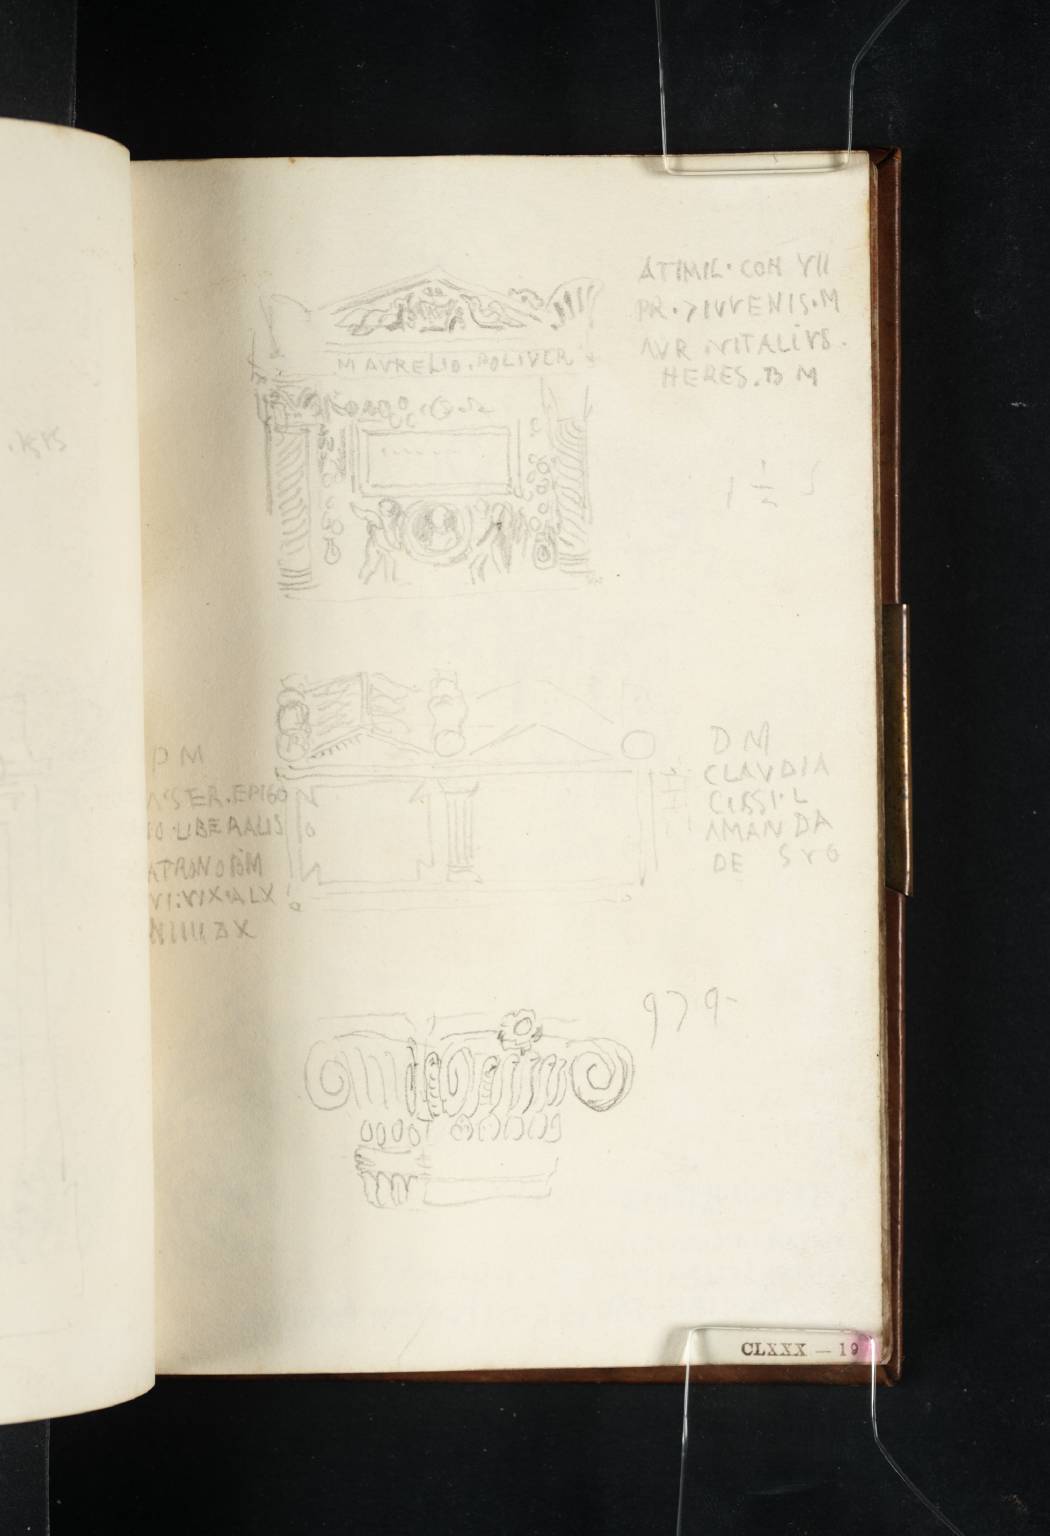 M AVRELIO . POLIVER
ATIMIL . COH VII
PR . > IVVENIS . M
AVR . VITALIVS .
HERES . B M
1 1/2
D M
STER . EPIGO
IO . LIBERALIS
ATRONO BM
VI : VIX . A LX
D M
CLAVDIA
L
AMANDA
DE S V O
979
CLXXX — 19